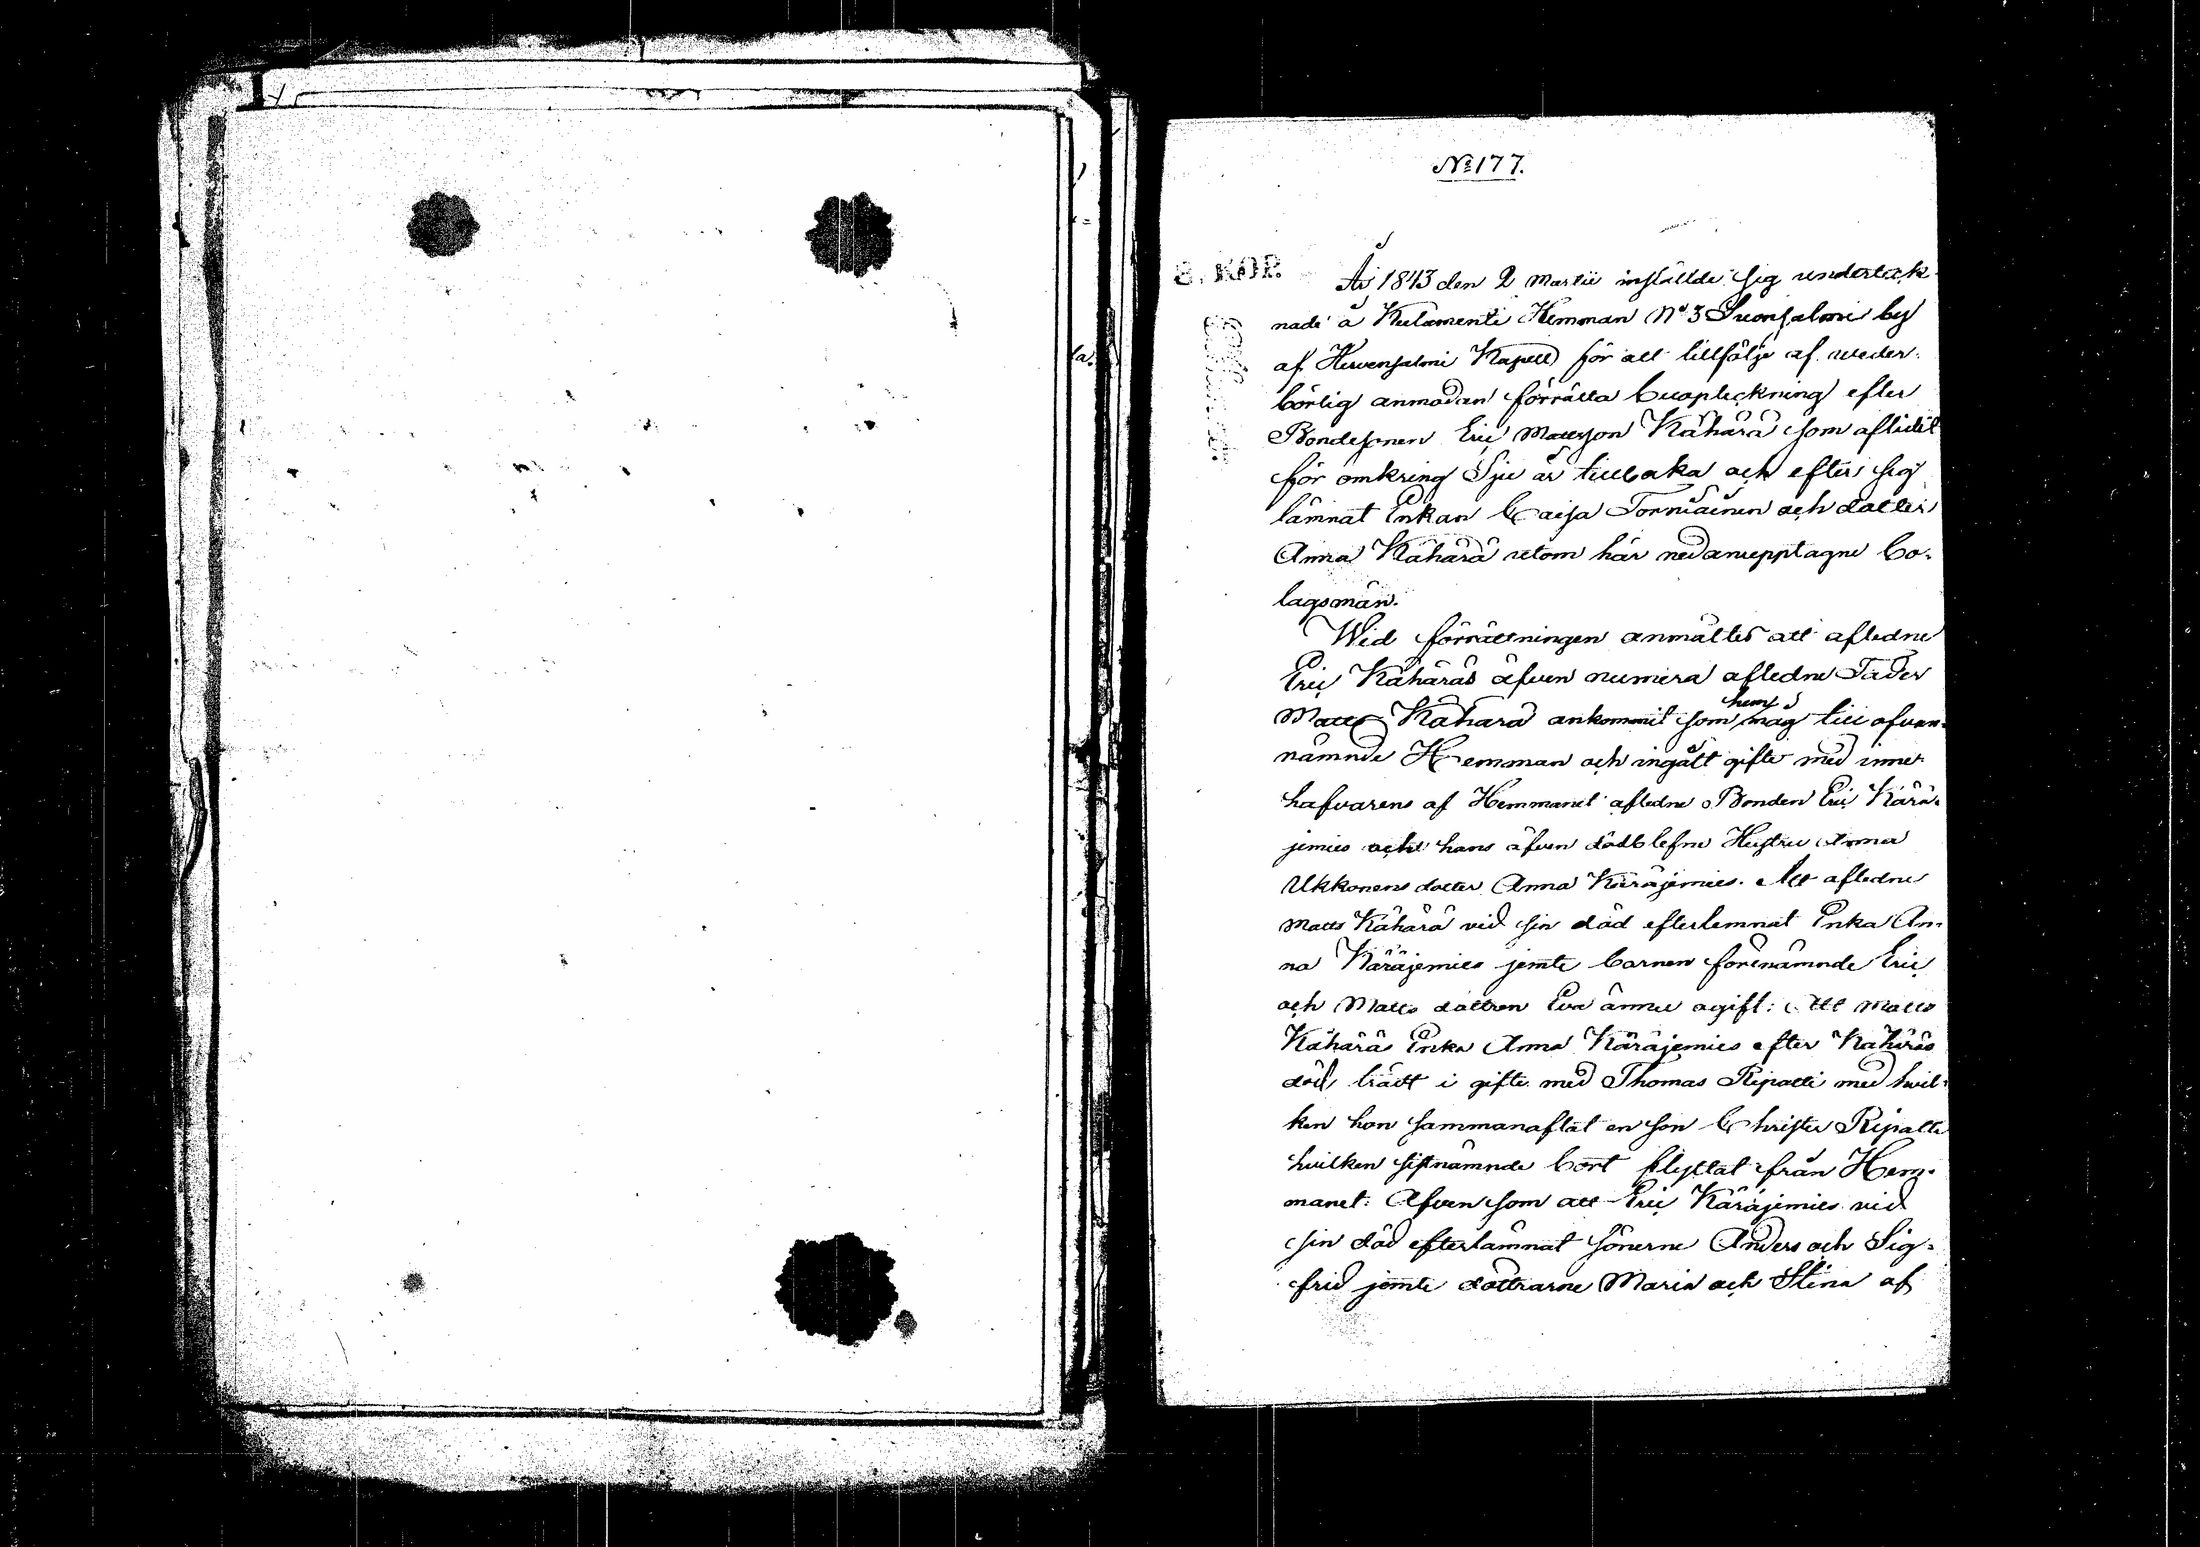 No 177.
8. KOP.
År 1843 den 2 Martii inställde sig underteck-
nade å Kulamenti Hemman No 3 Suonsalmi by
af Hirvensalmi Kapell för att tillfölje af veder-
börlig anmodan förrätta bouptekning efter
Bondesonen Eric Mattsson Kähärä som aflidit
för omkring Sju år tillbaka och efter sig
lämnat Enkan Caisa Torniainen och dotter
Anna Kähärä utom här nedanupptagne bo-
lagsmän.
Wid förrättningen anmältes att afledne
Eric Kähäräs äfven numera afledne Fader
Matts Kähärä ankommit som hemmåg till ofvan-
nämnde Hemman och ingått gifte med inne-
hafvarens af Hemmanet afledne Bonden Eric Kärä-
jemies och hans äfven dödblefne Hustru Anna
Ukkonens dotter Anna Käräjemies. Att afledne
Matts Kähärä vid sin död efterlemnat Enka An-
na Käräjemies jemte barnen förenämnde Eric
och Matts dottren Eva ännu ogift: Att Matts
Kähäräs Enka Anna Käräjemies efter Kähäräs
död trädt i gifte med Thomas Ripatti med hvil-
ken hon sammanaflat en son Christer Ripatti
hvilken sistnämnde bort flyttat från Hem-
manet: Äfvensom att Eric Käräjemies vid
sin död efterlämnat sönerne Anders och Sig-
frid jemte dottrarne Maria och Stina af